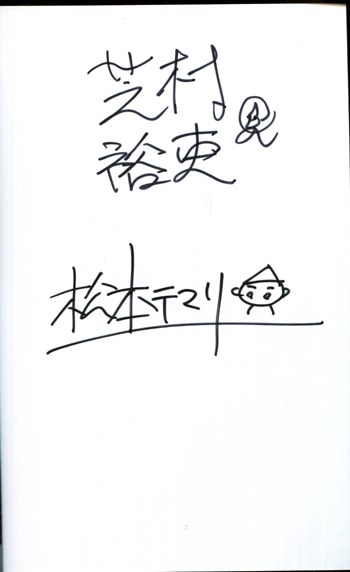 芝村
裕吏
松本テマリ